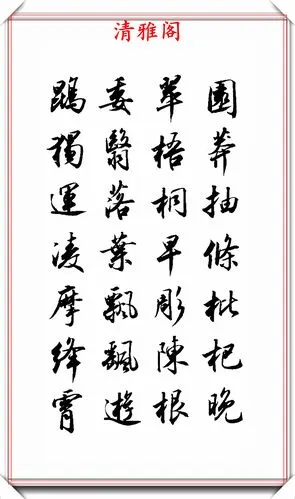 清雅阁
園莽抽條枇杷晚
翠梧桐早彫陳根
委翳落葉飄颻遊
鵾獨運凌摩絳霄